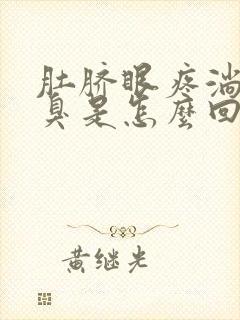 肚脐眼疼淌
臭是怎麼回
黄继光